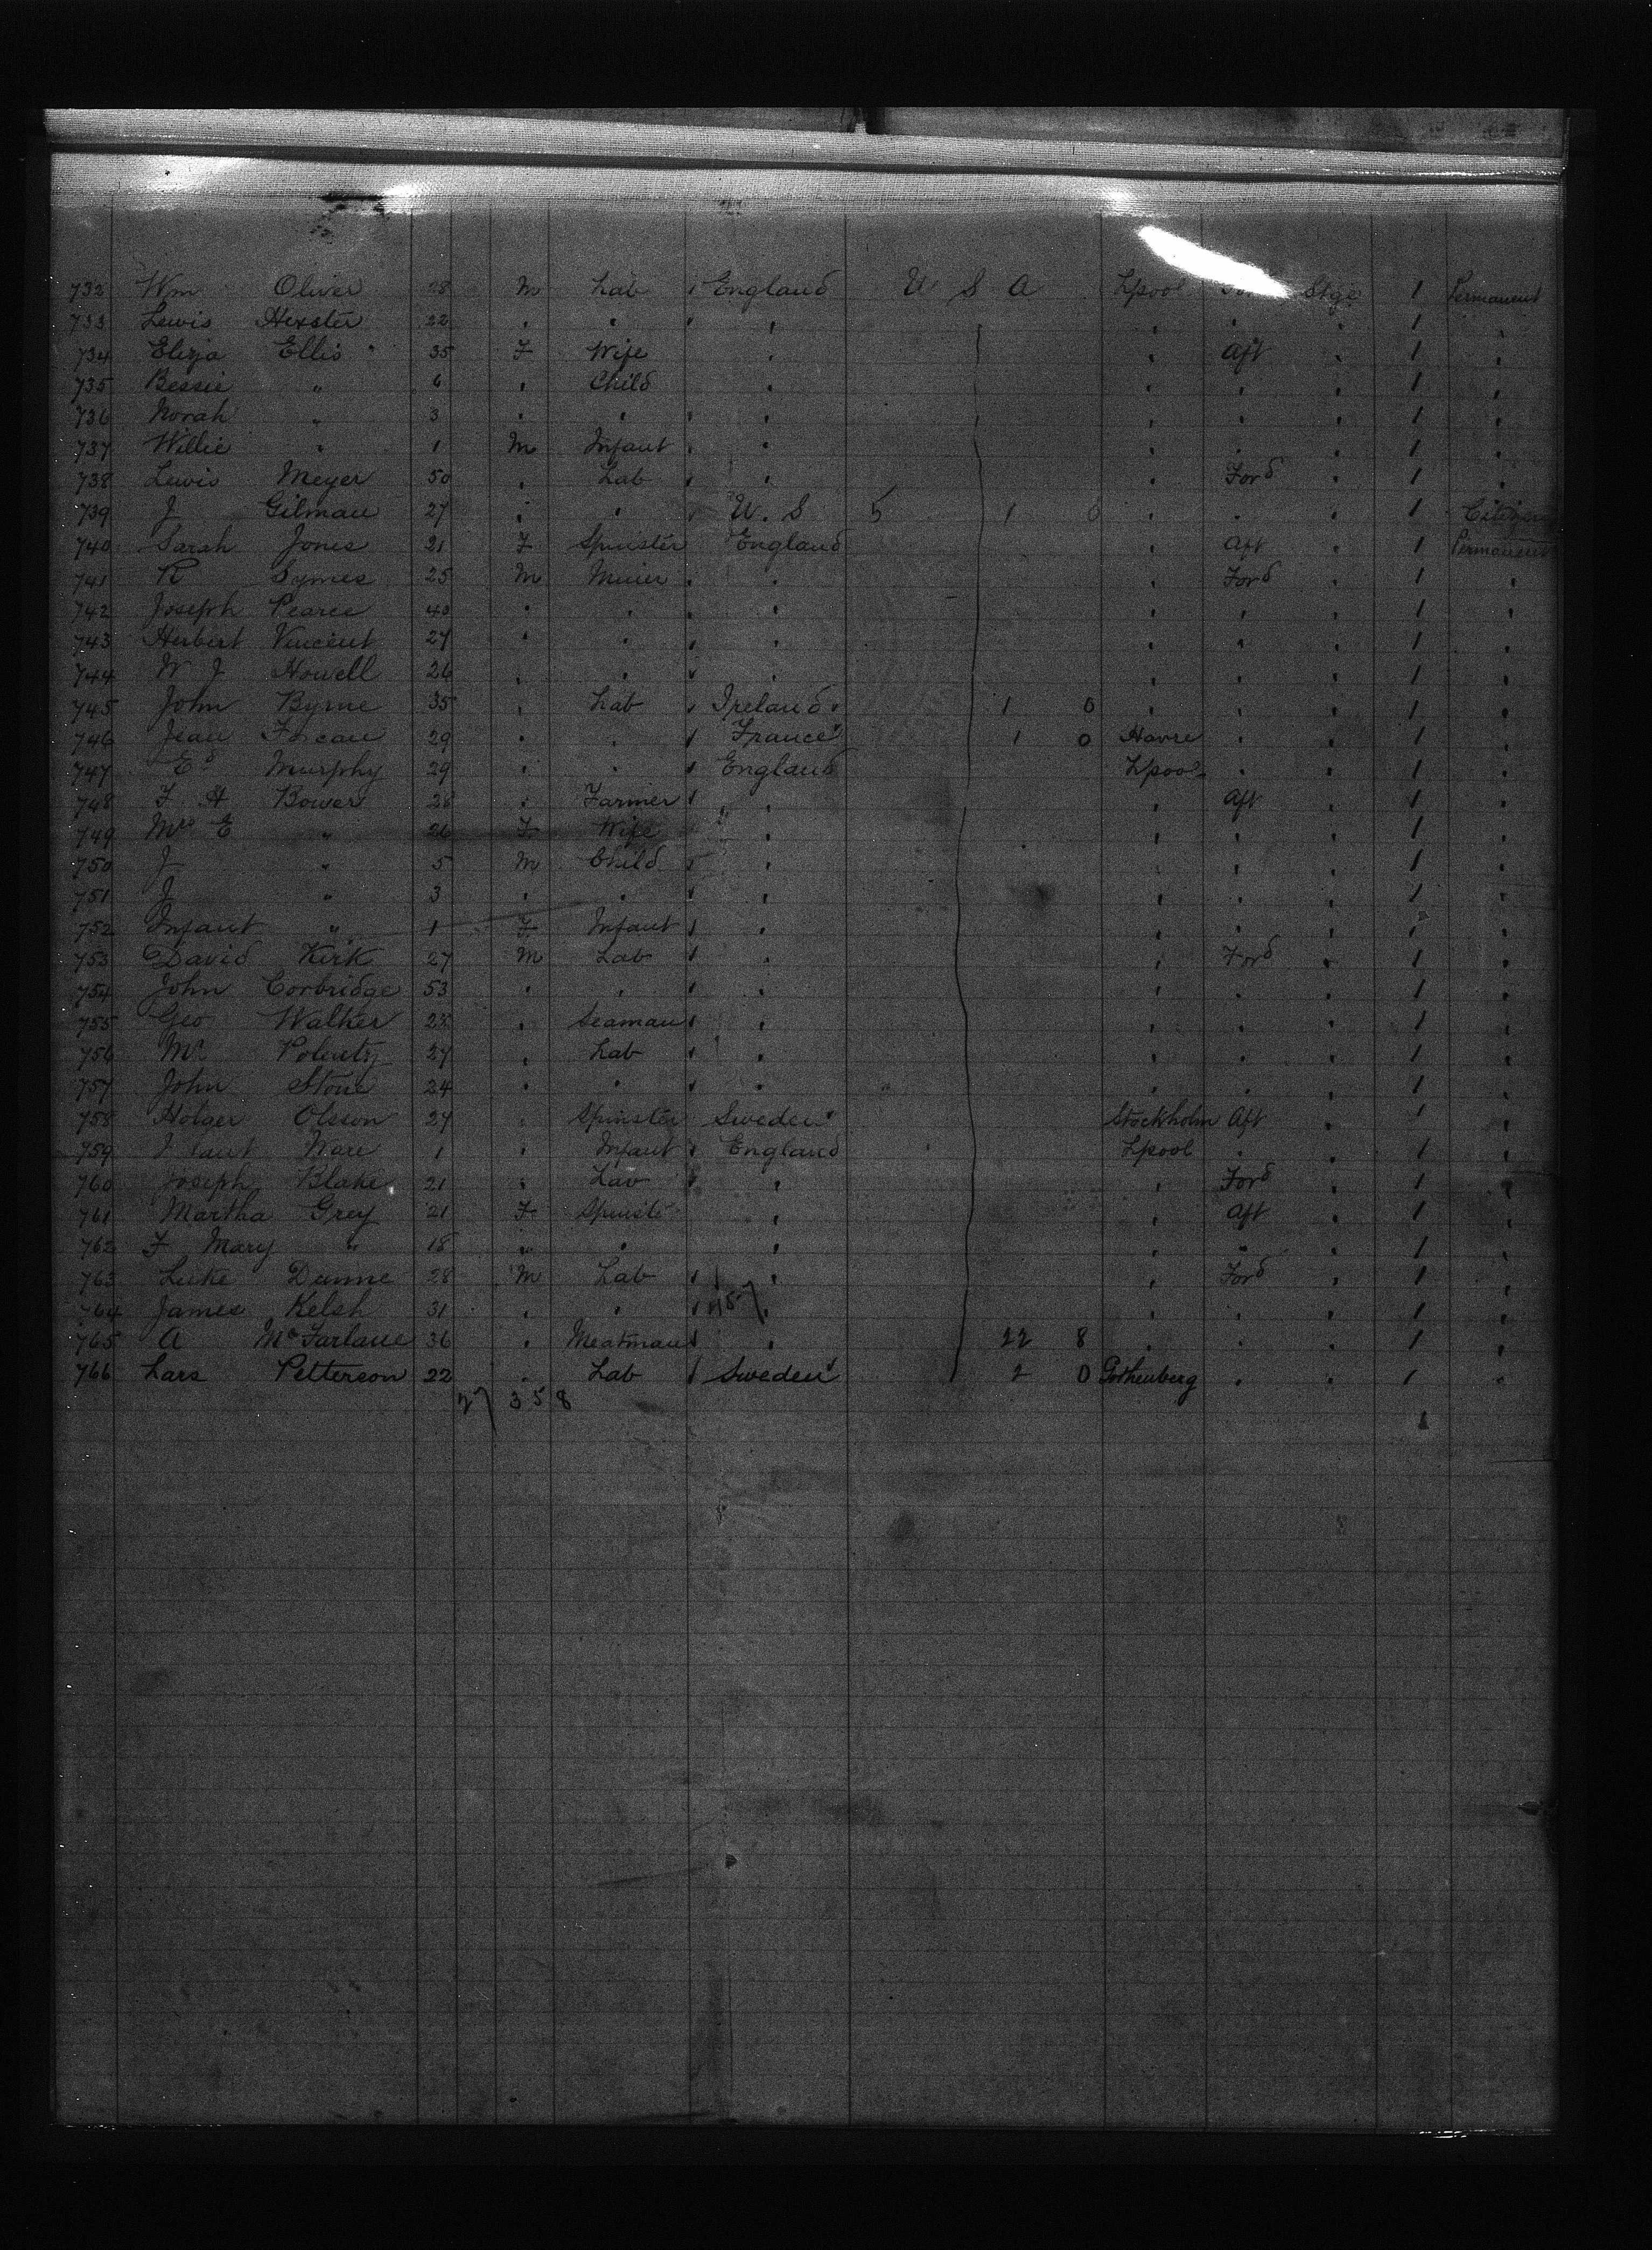 732 Wm Oliver 28 m Lab England U S A Lpool Stge 1 Permanent
733 Lewis Hexster 22 " " " " " " 1 "
734 Eliza Ellis 35 F Wife " " Aft " 1 "
735 Bessie " 6 " Child " " " " 1 "
736 Norah " 3 " " " " " " 1 "
737 Willie " 1 m Infant " " " " 1 "
738 Lewis Meyer 50 " Lab " " Ford " 1 "
739 J Gilman 27 " " U.S 5 1 0 " " " 1 Citizen
740 Sarah Jones 21 F Spinster England " Aft " 1 Permanent
741 R Symes 25 m Miner " " Ford " 1 "
742 Joseph Pearce 40 " " " " " " 1 "
743 Herbert Vincent 27 " " " " " " 1 "
744 W J Howell 26 " " " " " " 1 "
745 John Byrne 35 " Lab Ireland 1 0 " " " 1 "
746 Jean 29 " " France 1 0 Havre " " 1 "
747 Ed Murphy 29 " " England Lpool " " 1 "
748 F H Bower 28 " Farmer " " Aft " 1 "
749 Mrs E " 26 F Wife " " " " 1 "
750 J " 5 m Child " " " " 1 "
751 J " 3 " " " " " " 1 "
752 Infant " 1 F Infant " " " " 1 "
753 David Kirk 27 m Lab " " Ford " 1 "
754 John Corbridge 53 " " " " " " 1 "
755 Geo Walker " Seaman " " " " 1 "
756 27 " Lab " " " " 1 "
757 John Stone 24 " " " " " " 1 "
758 Holger Olsson 27 " Spinster Sweden Stockholm Aft " 1 "
759 Ware 1 " Infant England Lpool " " 1 "
760 Joseph Blake 21 " Lab " " Ford " 1 "
761 Martha Grey 21 F Spinste " " Aft " 1 "
762 F Mary " 18 " " " " " " 1 "
763 Luke Dunne 28 m Lab " " Ford " 1 "
764 James Kelsh 31 " " " " " " 1 "
765 A McFarlane 36 " Meatman " 22 8 " " " 1 "
766 Lars Petterson 22 " Lab Sweden 2 0 Gothenberg " " 1 "
358